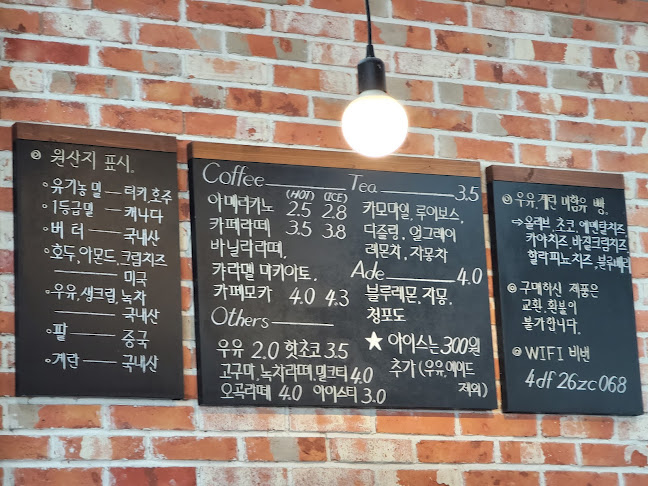 원산지 표시.
유기농 밀 — 터키, 호주
1등급밀 — 캐나다
버터 — 국내산
호두, 아몬드, 크림치즈
— 미국
우유, 생크림, 녹차
— 국내산
팥 — 중국
계란 — 국내산
Coffee
(HOT) (ICE)
아메리카노 2.5 2.8
카페라떼 3.5 3.8
바닐라라떼,
카라멜 마키아토,
카페모카 4.0 4.3
Others
우유 2.0 핫초코 3.5
고구마, 녹차라떼, 밀크티 4.0
오곡라떼 4.0 아이스티 3.0
Tea 3.5
카모마일, 루이보스,
다즐링, 얼그레이
레몬차, 자몽차
Ade 4.0
블루레몬, 자몽,
청포도
★ 아이스는 300원
추가 (우유, 에이드
제외)
우유, 계란 미함유 빵.
⇒ 올리브, 초코, 에멘탈치즈
카야치즈, 바질크림치즈
할라피노치즈, 블루베리
구매하신 제품은
교환, 환불이
불가합니다.
WIFI 비번
4df26zc068